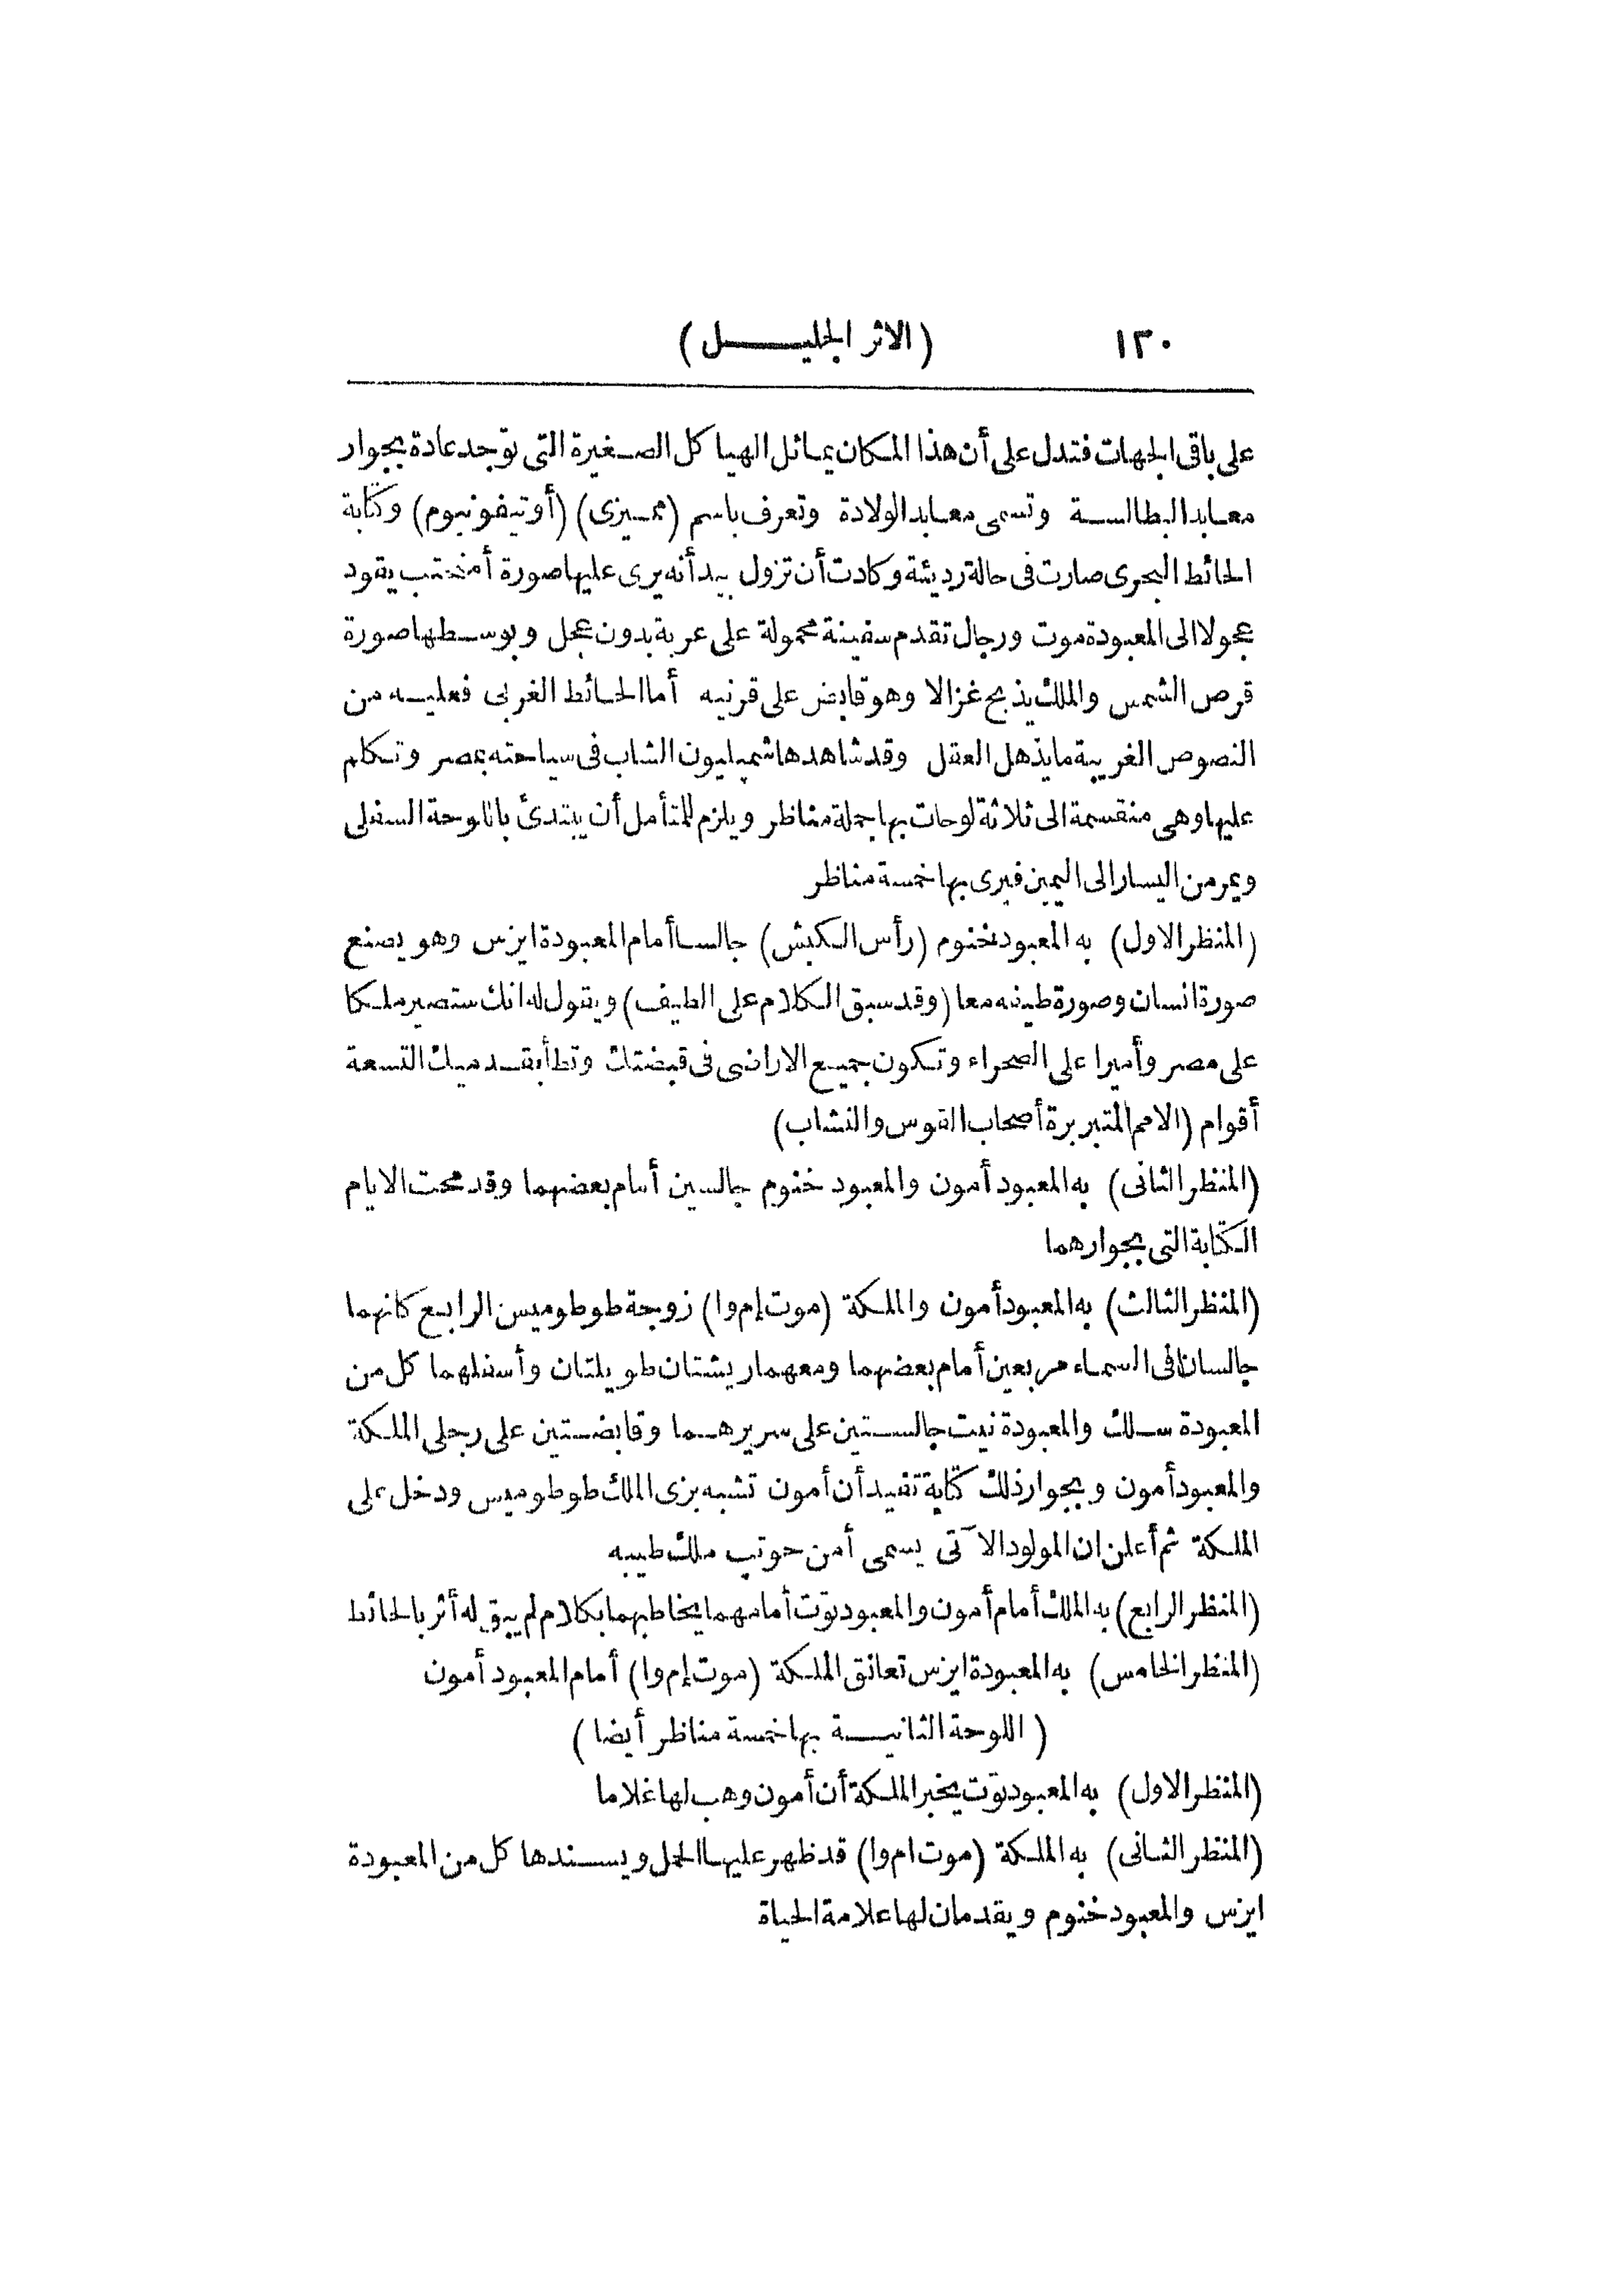 ١٣٠ (الاثر الجليـــل)
على باقى الجهات فتدل على أن هذا المكان يماثل الهياكل الصغيرة التى توجد عادة بجوار
معابد البطالسة وتسمى معابد الولادة وتعرف باسم (ممـيزى) (أو تيفونيوم) وكتابة
الحائط البحرى صارت فى حالة رديئة وكادت أن تزول بيد أنه يرى عليها صورة أمنحتب يقود
عجولا الى المعبودة موت ورجال تقدم سفينة محمولة على عربة بدون عجل وبوسطها صورة
قرص الشمس والملك يذبح غزالا وهو قابض على قرنيه أما الحائط الغربى فعليه من
النصوص الغريبة ما يذهل العقل وقد شاهدها شمپليون الشاب فى سياحته بمصر وتكلم
عليها وهى منقسمة الى ثلاثة لوحات بها جملة مناظر ويلزم للمتأمل أن يبتدئ باللوحة السفلى
ويمر من اليسار الى اليمين فيرى بها خمسة مناظر
(المنظر الاول) به المعبود خنوم (رأس الكبش) جالسا أمام المعبودة ايزس وهو يصنع
صورة انسان وصورة طيفه معا (وقد سبق الكلام على الطيف) ويقول له انك ستصير ملكا
على مصر وأميرا على الصحراء وتكون جميع الاراضى فى قبضتك وتطأ بقدميك التسعة
أقوام (الامم المتبربرة أصحاب القوس والنشاب)
(المنظر الثانى) به المعبود أمون والمعبود خنوم جالسين أمام بعضهما وقد محت الايام
الكتابة التى بجوارهما
(المنظر الثالث) به المعبود أمون والملكة (موت إم وا) زوجة طوطوميس الرابع كانهما
جالسان فى السماء مربعين أمام بعضهما ومعهما ريشتان طويلتان وأسفلهما كل من
المعبودة سلك والمعبودة نيت جالستين على سريرهما وقابضتين على رجلى الملكة
والمعبود أمون وبجوار ذلك كتابة تفيد أن أمون تشبه بزى الملك طوطوميس ودخل على
الملكة ثم أعلن ان المولود الآتى يسمى أمن حوتپ ملك طيبه
(المنظر الرابع) به الملك أمام أمون والمعبود توت أمامهما يخاطبهما بكلام لم يبق له أثر بالحائط
(المنظر الخامس) به المعبودة ايزس تعانق الملكة (موت إم وا) أمام المعبود أمون
(اللوحة الثانيـــة بها خمسة مناظر أيضا)
(المنظر الاول) به المعبود توت يخبر الملكة أن أمون وهب لها غلاما
(المنظر الثانى) به الملكة (موت ام وا) قد ظهر عليها الحمل ويسندها كل من المعبودة
ايزس والمعبود خنوم ويقدمان لها علامة الحياة